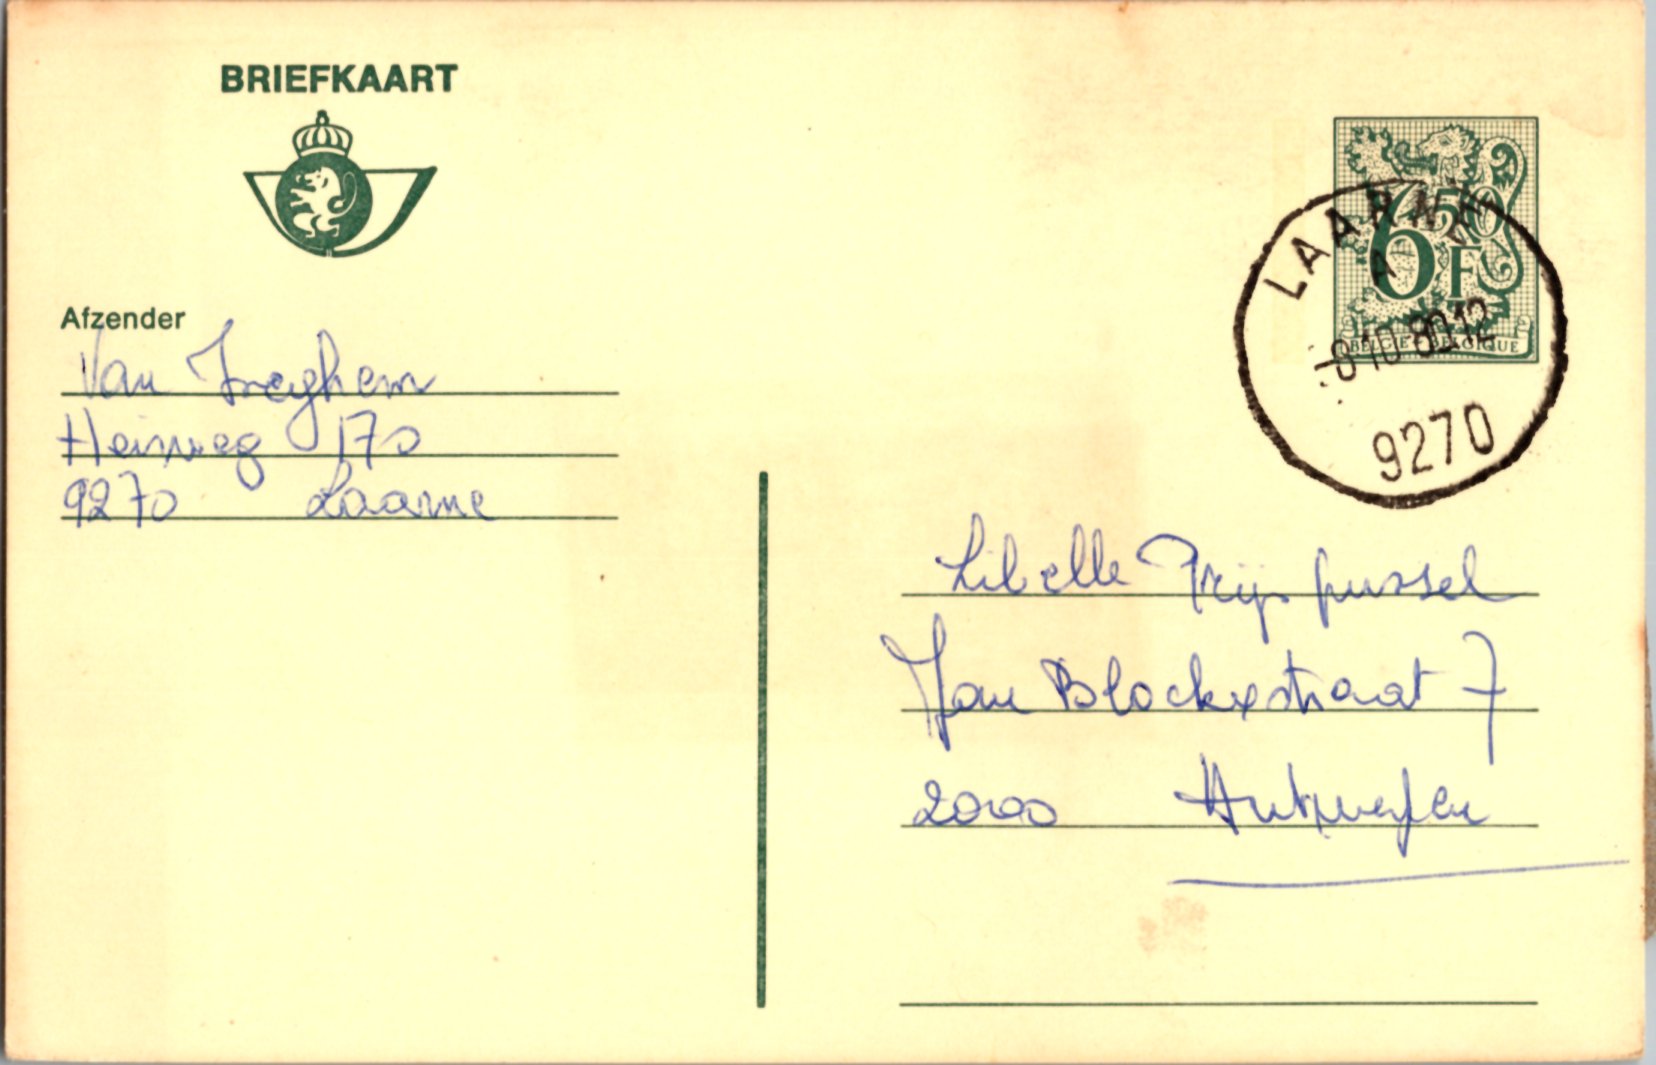 BRIEFKAART
Afzender
Van
Heirweg 170
9270 Laarne
6,50 F
BELGIË BELGIQUE
LAARNE
A
-8-10 80.12
9270
Libelle Prijs pussel
Jan Blockxstraat 7
2000 Antwerpen